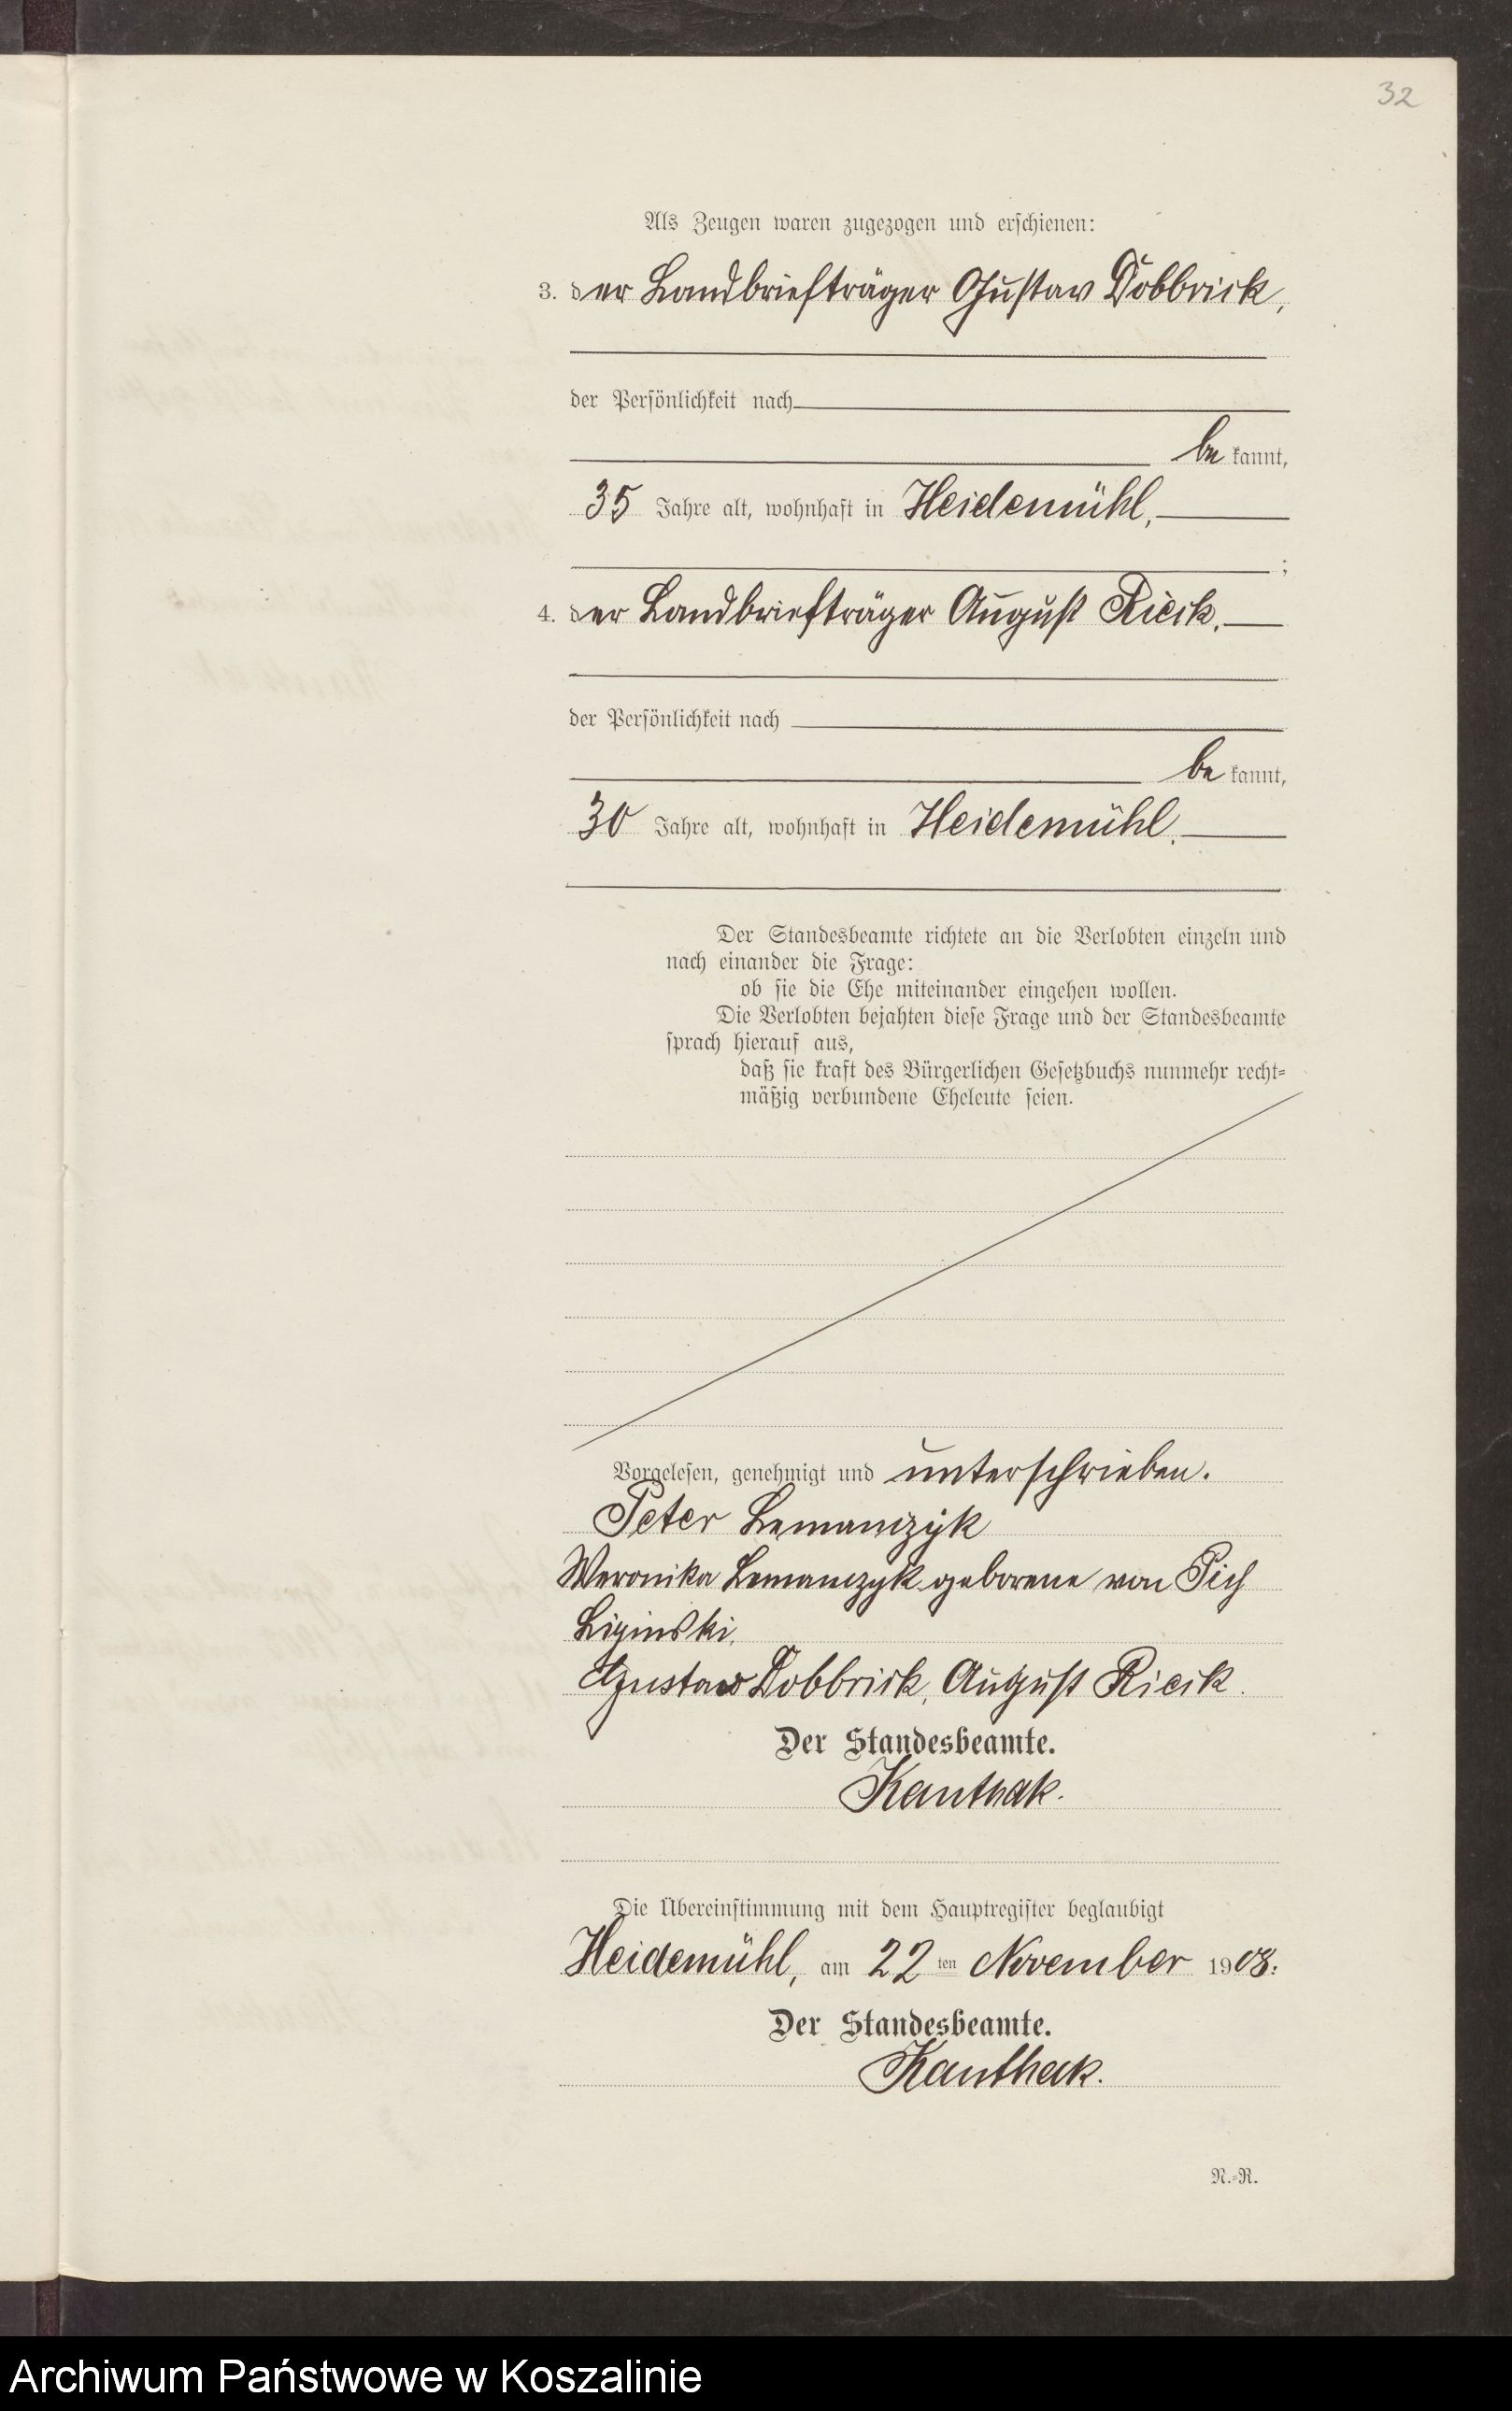 32
Als Zeugen waren zugezogen und erschienen:
3. der Landbriefträger Gustav Dobbrick,
der Persönlichkeit nach
be kannt,
35 Jahre alt, wohnhaft in Heidemühl,
;
4. der Landbriefträger August Rieck,
der Persönlichkeit nach
be kannt,
30 Jahre alt, wohnhaft in Heidemühl.
Der Standesbeamte richtete an die Verlobten einzeln und
nach einander die Frage:
ob sie die Ehe miteinander eingehen wollen.
Die Verlobten bejahten diese Frage und der Standesbeamte
sprach hierauf aus,
daß sie kraft des Bürgerlichen Gesetzbuchs nunmehr recht-
mäßig verbundene Eheleute seien.
Vorgelesen, genehmigt und unterschrieben.
Peter Lemanczyk
Weronika Lemanczyk geborene von Pich
Lipinski.
Gustav Dobbrick, August Rieck.
Der Standesbeamte.
Kanthak.
Die Übereinstimmung mit dem Hauptregister beglaubigt
Heidemühl, am 22 ten November 1908.
Der Standesbeamte.
Kanthak.
N.-R.
Archiwum Państwowe w Koszalinie